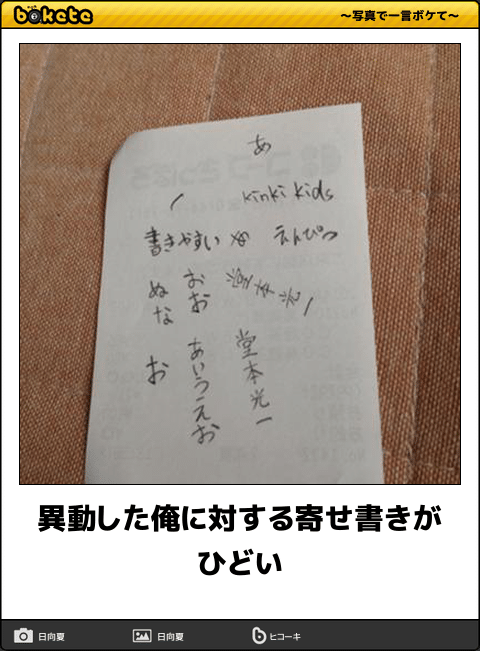 bokete
〜写真で一言ボケて〜
あ
kinki kids
書きやすい えんぴつ
堂本光一
おお
ぬな
堂本光一
あいうえお
お
異動した俺に対する寄せ書きが
ひどい
日向夏 日向夏 ヒコーキ